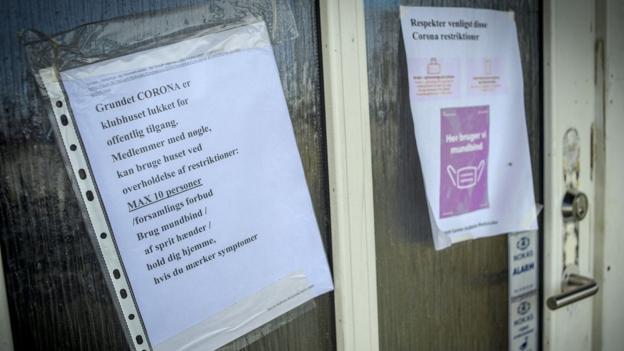 Grundet CORONA er
klubhuset lukket for
offentlig tilgang.
Medlemmer med nøgle,
kan bruge huset ved
overholdelse af restriktioner:
MAX 10 personer
/forsamlings forbud
Brug mundbind /
af sprit hænder /
hold dig hjemme,
hvis du mærker symptomer
Respekter venligst disse
Corona restriktioner
Her bruger vi
mundbind
NOKAS
ALARM
NOKAS